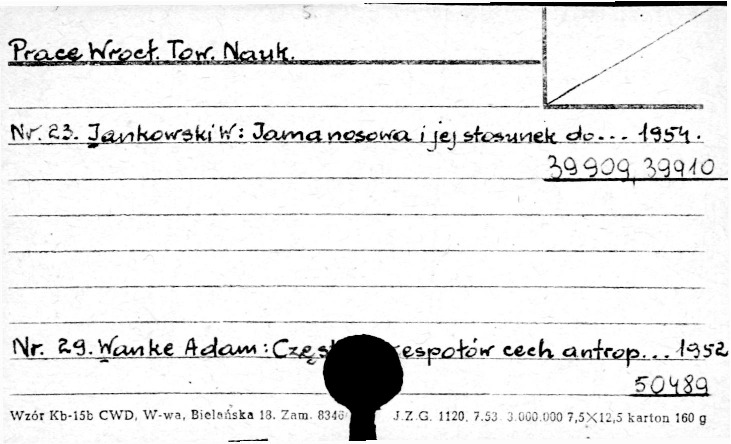 5.
Prace Wrocł. Tow. Nauk.
Nr. 23. Jankowski W: Jama nosowa i jej stosunek do... 1954.
39909, 39910
Nr. 29. Wanke Adam: espołów cech antrop... 1952
50489
Wzór Kb-15b CWD, W-wa, Bielańska 18. Zam. 8346 J.Z.G. 1120. 7.53. 3.000.000 7,5×12,5 karton 160 g